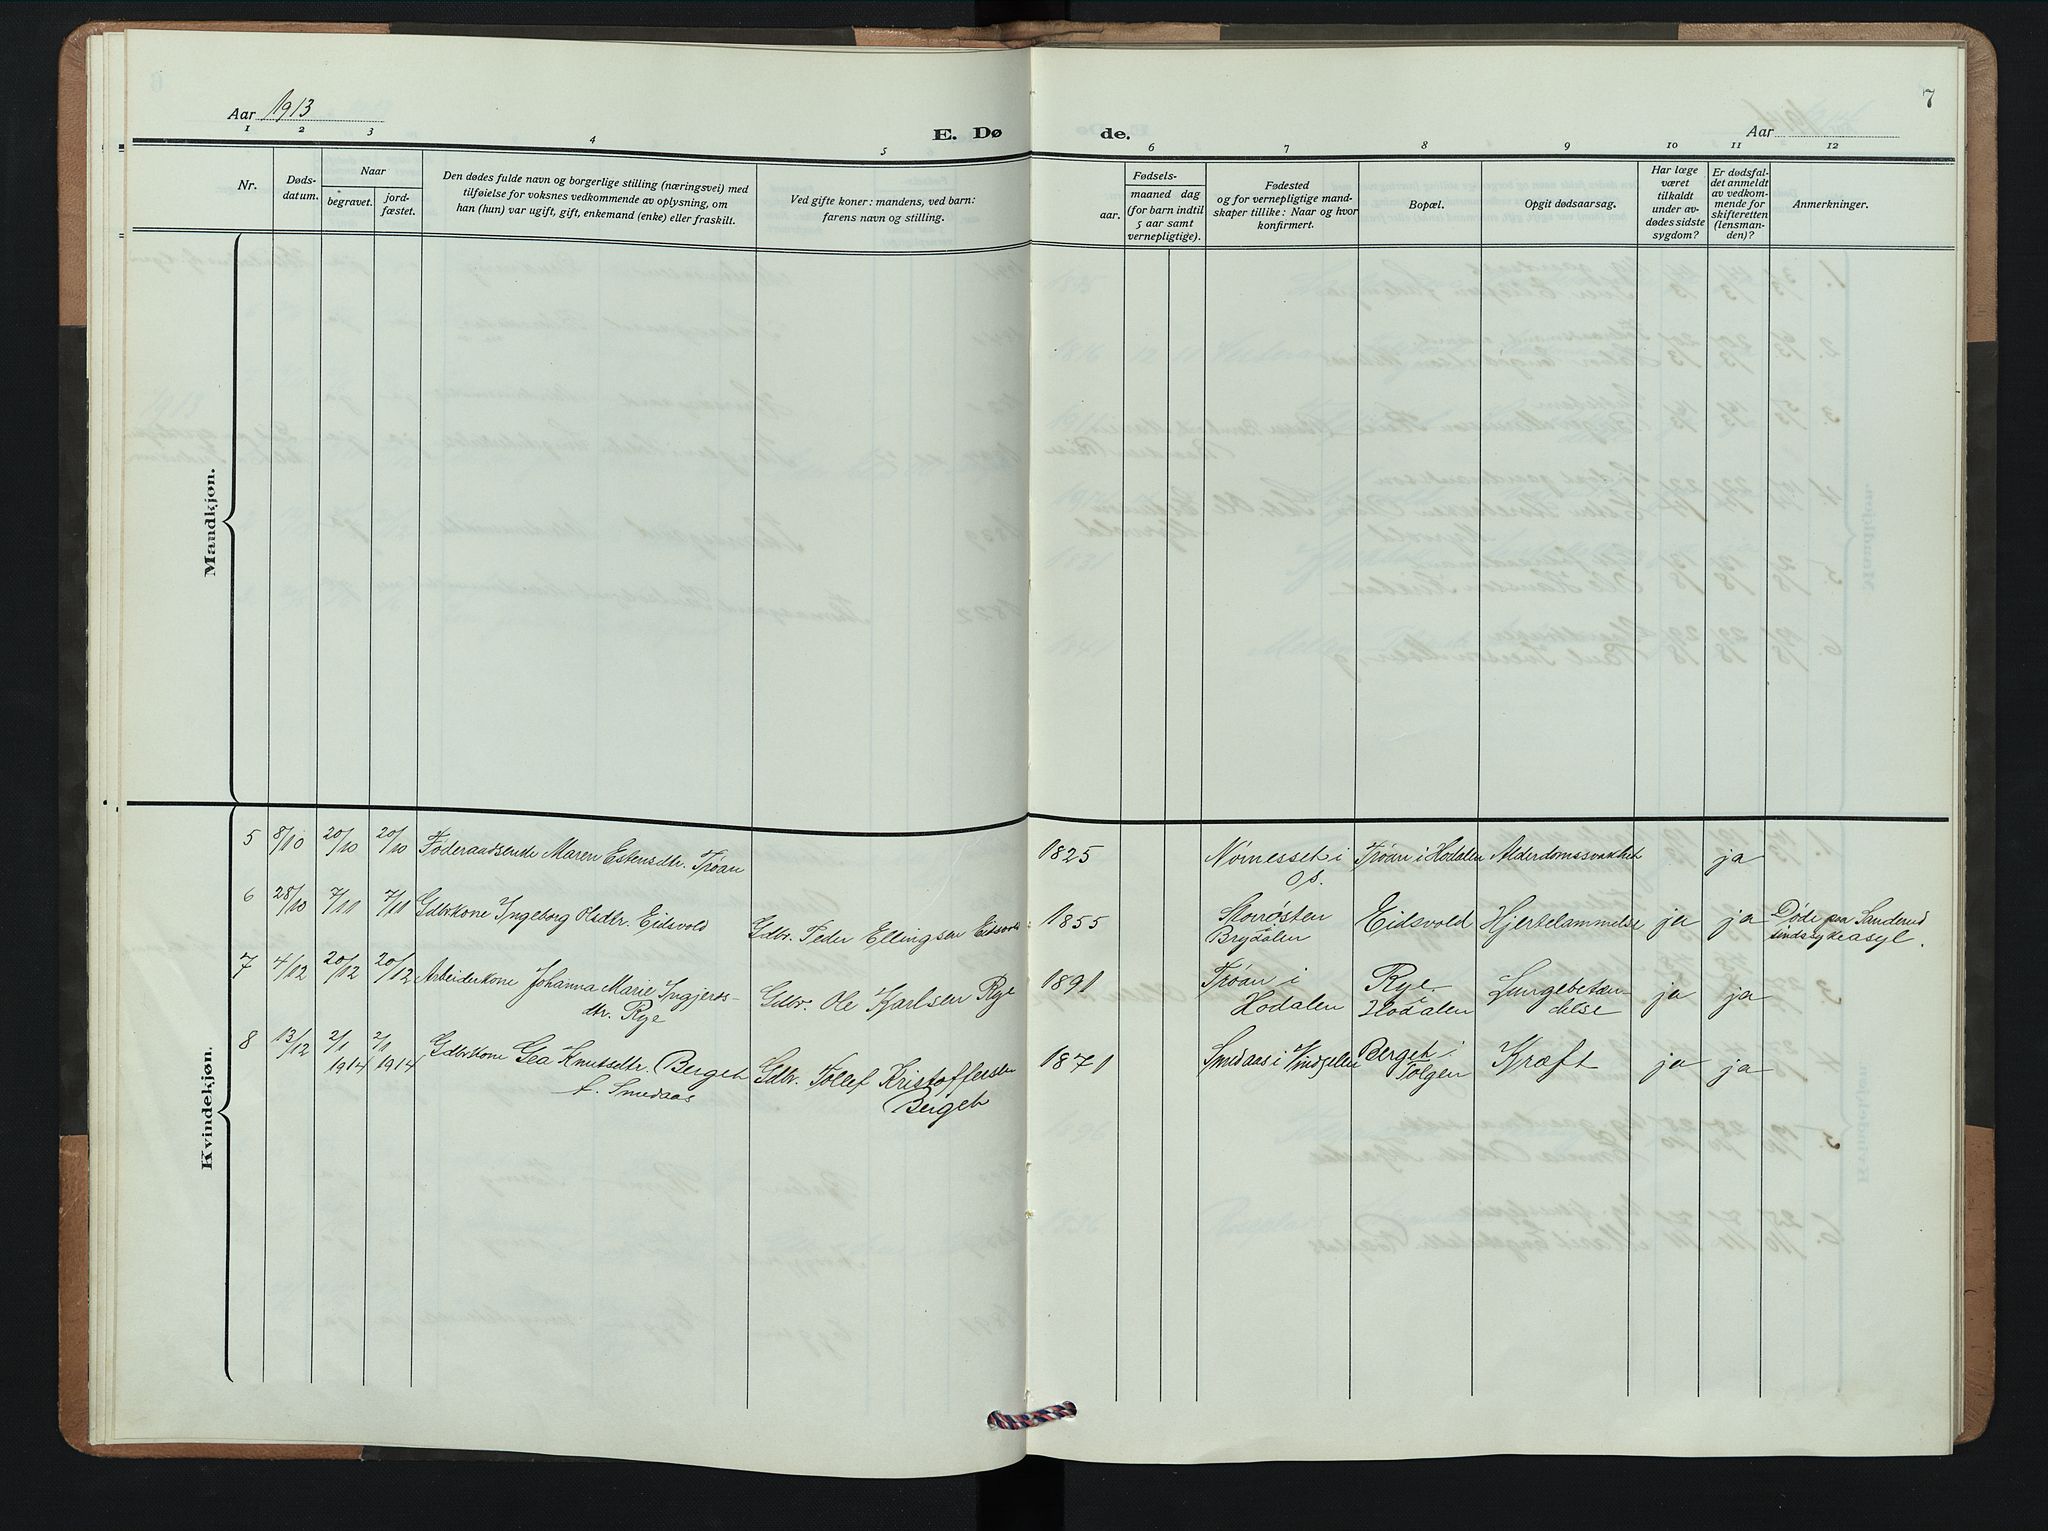 Aar 1913
E. Dø
de.
Aar
7
1 2 3 4 5 6 7 8 9 10 11 12
Nr.
Døds-
datum.
Naar
begravet.
jord-
fæstet.
Den dødes fulde navn og borgerlige stilling (næringsvei) med
tilføielse for voksnes vedkommende av oplysning, om
han (hun) var ugift, gift, enkemand (enke) eller fraskilt.
Ved gifte koner: mandens, ved barn:
farens navn og stilling.
Fødsels-
aar.
maaned dag
(for barn indtil
5 aar samt
vernepligtige).
Fødested
og for vernepligtige mand-
skaper tillike: Naar og hvor
konfirmert.
Bopæl.
Opgit dødsaarsag.
Har læge
været
tilkaldt
under av-
dødes sidste
sygdom?
Er dødsfal-
det anmeldt
av vedkom-
mende for
skifteretten
(lensman-
den)?
Anmerkninger.
Mandkjøn.
Kvindekjøn.
5 8/10 20/10 20/10 Føderaadsenke Maren Estensdtr. Trøan 1825 Nørnesset i Trøan i Hodalen Alderdomssvakhet ja
Os.
6 28/10 7/11 7/11 Gdbrkone Ingeborg Olsdtr. Eidsvold Gdbr. Peder Ellingsen Eidsvold 1855 Storrøsten Eidsvold Hjertelammelse ja ja Døde paa Sanderud
Brydalen sindssykeasyl.
7 4/12 20/12 20/12 Arbeiderkone Johanna Marie Ingjerds- Gdbr. Ole Karlsen Rye 1891 Trøan i Rye Lungebetæn- ja ja
dtr. Rye Hodalen Hodalen delse
8 13/12 2/1 2/1 Gdbrkone Gea Knutsdtr. Berget Gdbr. Tollef Kristoffersen 1871 Smedaas i Vindgelen Berget i Kræft ja ja
1914 1914 f. Smedaas Berget Tolgen